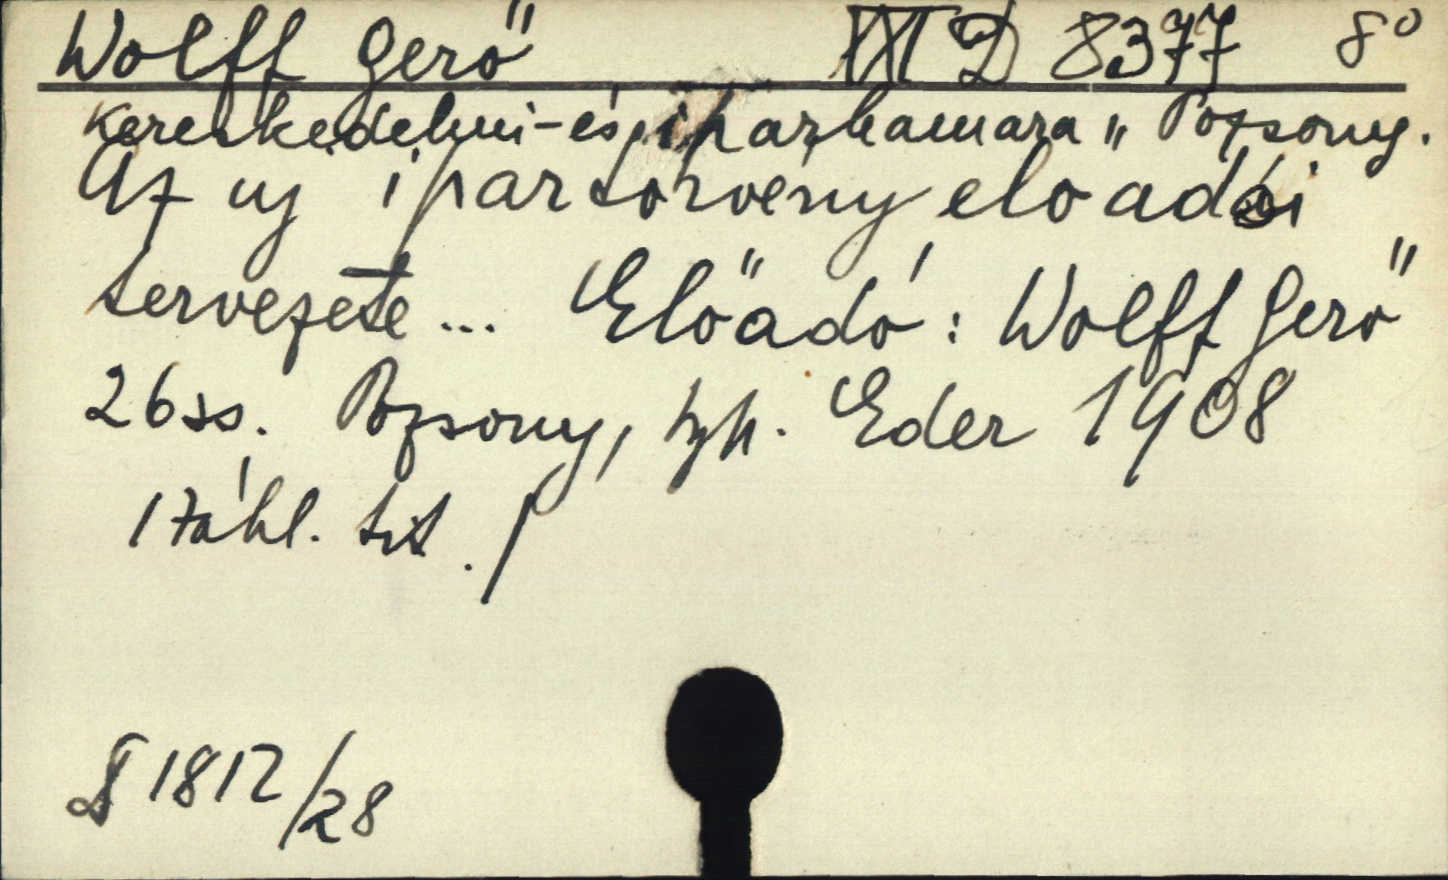 Wolff Gerő XXI D 8377 8°
Kereskedelmi-és iparkamara „ Pozsony.
Az uj ipartörvény eloadói
tervezete ... Előadó : Wolff Gerő
26 ss. Pozsony, tyk. Eder 1908
1 tábl.
1812/28